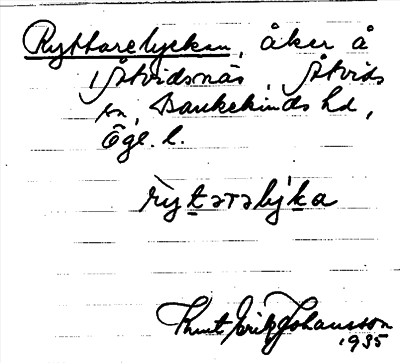 Ryttarelyckan, åker å
Åtvidsnäs, Åtvids
sn, Bankekinds hd,
Ögl. l.
rỳtarəlýka
Knut Erik Johansson
1935